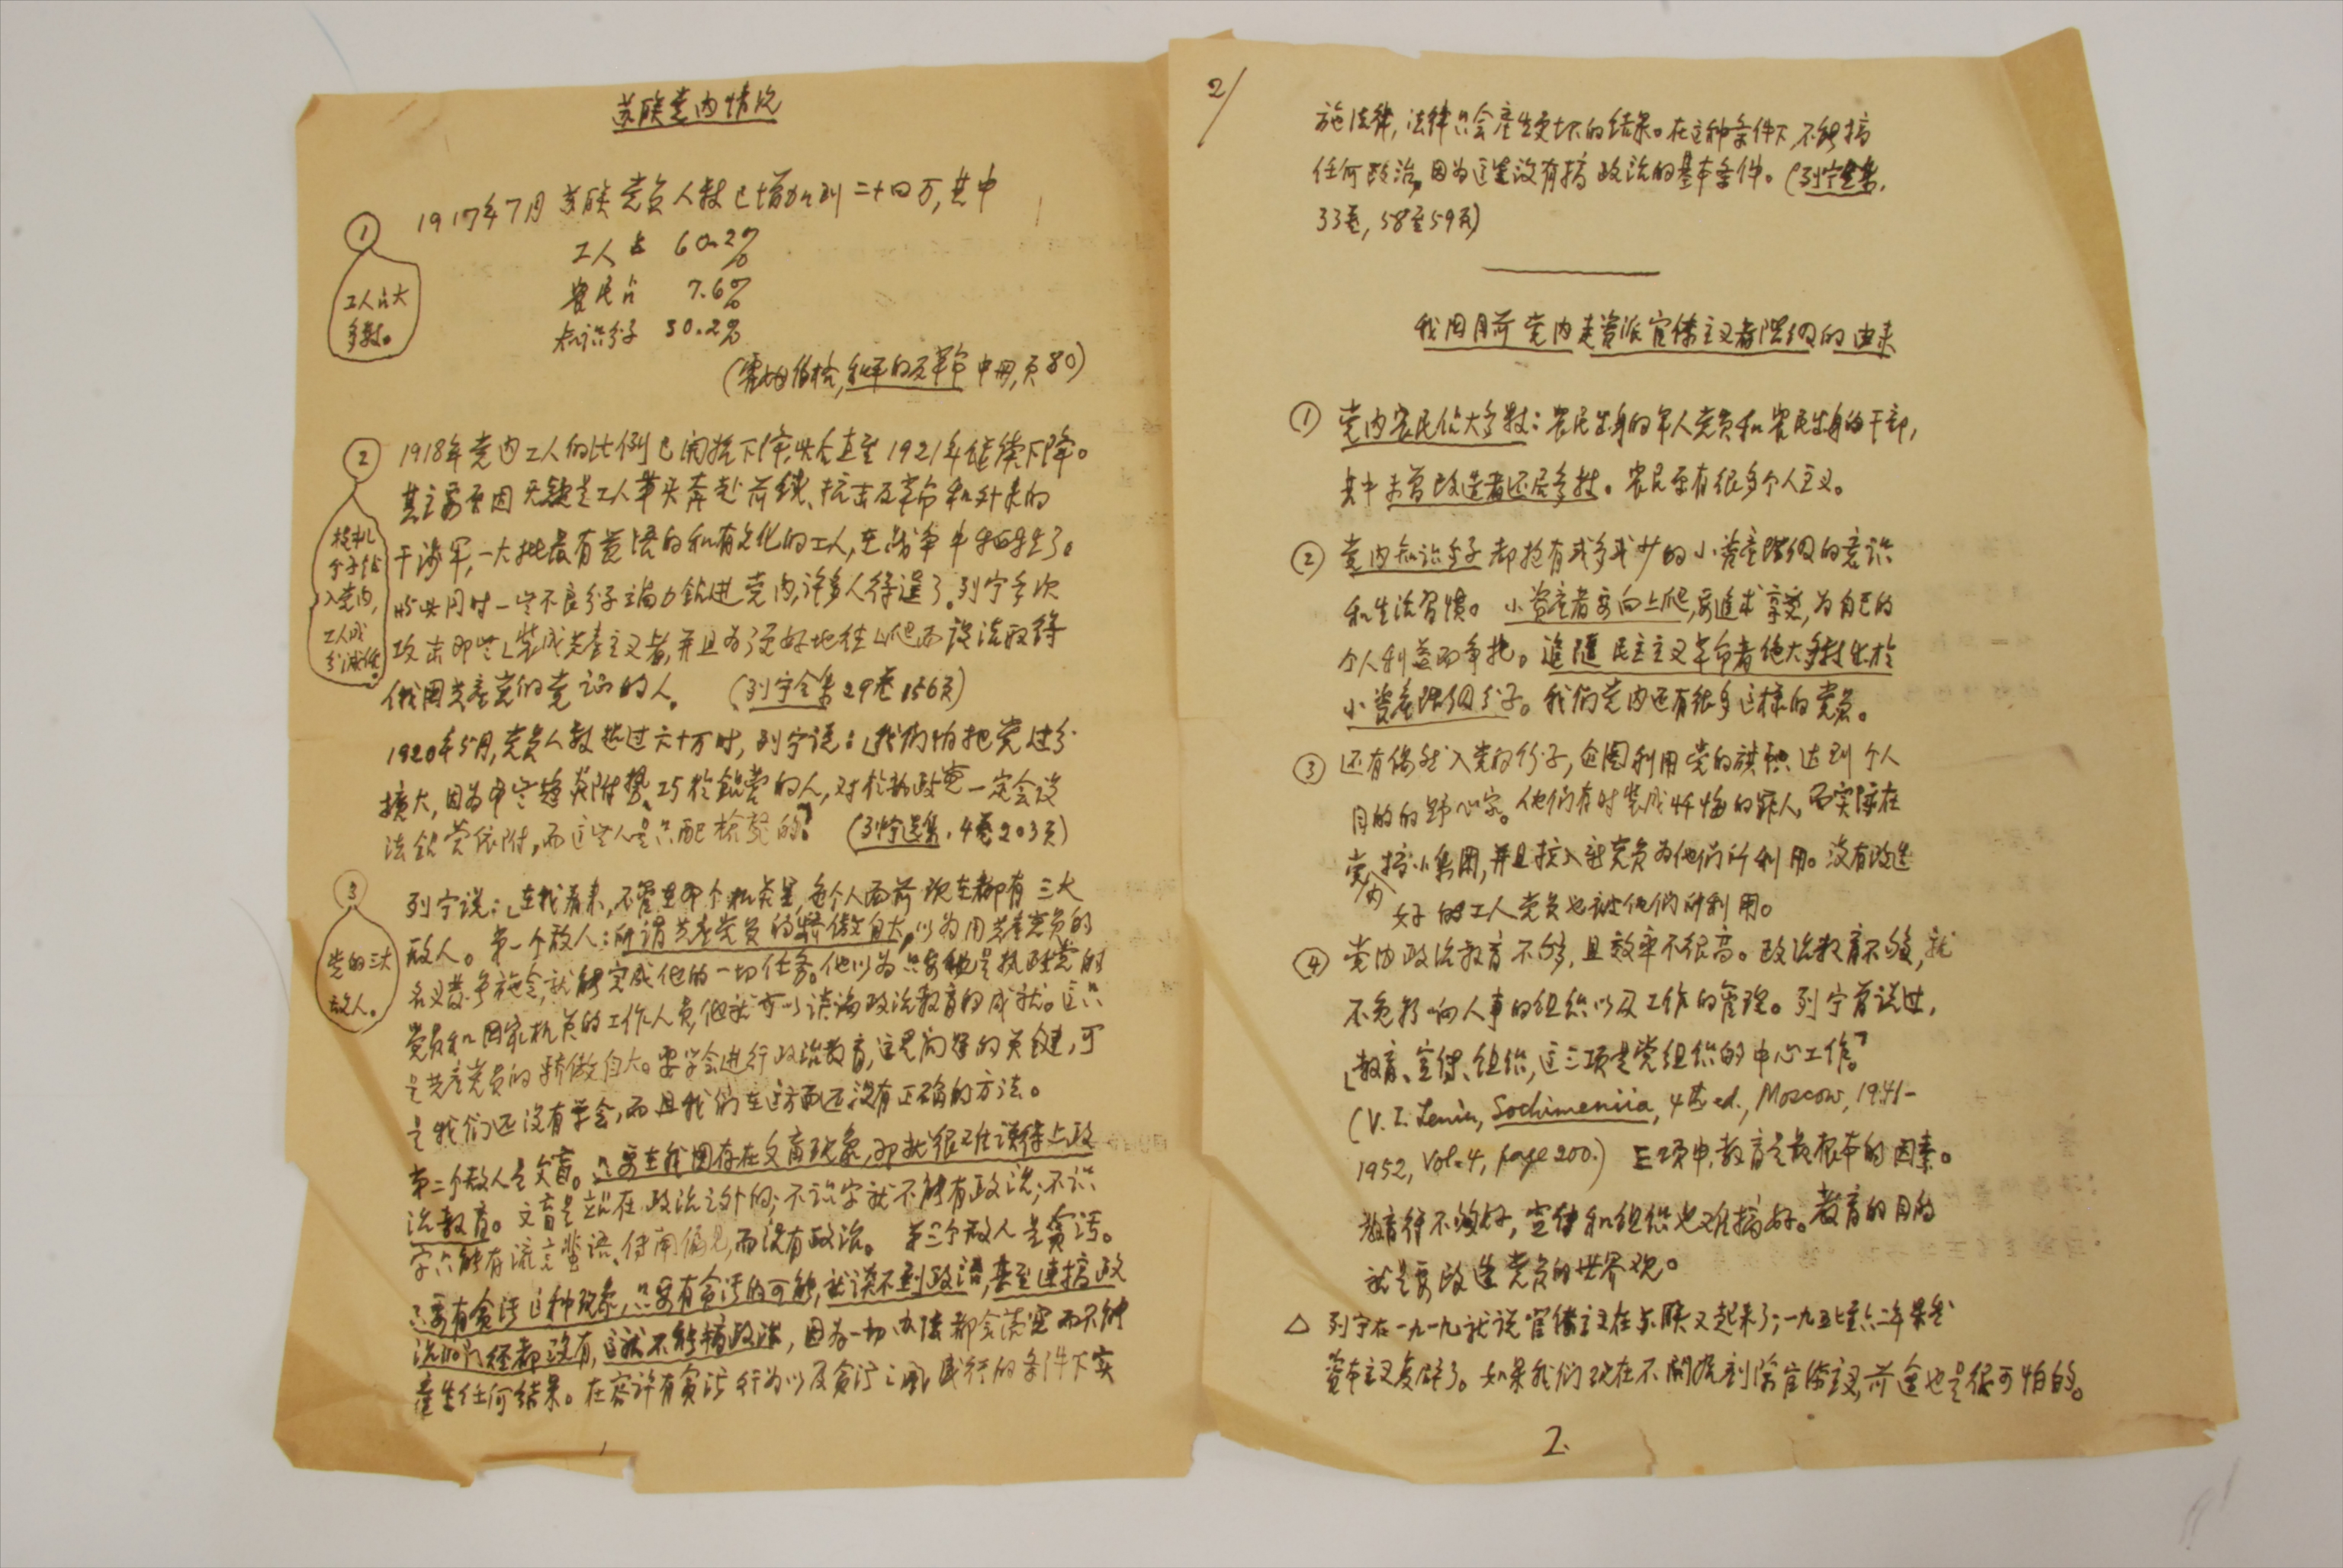 苏联党内情况
1917年7月苏联党员人数已增加到二十四万,其中
①
工人占 60.2%
农民占 7.6%
知识分子 30.2%
工人占大
多数。
(霍姆伯格,和平的反革命 中册,页80)
② 1918年党内工人的比例已开始下降,此后直至1921年继续下降。
其主要原因无疑是工人带头奔赴前线、抗击反革命和外来的
干涉军,一大批最有觉悟的和有文化的工人,在战争中牺牲了。
与此同时一些不良分子竭力钻进党内,许多人得逞了。列宁多次
攻击那些「装成共产主义者,并且为了更好地往上爬而设法取得
俄国共产党的党证的人。 (列宁全集29卷156页)
投机
分子钻
入党内,
工人成
分减低。
1920年5月,党员人数超过六十万时,列宁说:「我们怕把党过分
扩大,因为那些趋炎附势、巧于钻营的人,对于执政党一定会设
法钻营依附,而这些人是只配枪毙的」 (列宁选集,4卷203页)
③ 列宁说:「在我看来,不管在那个机关里,每个人面前现在都有三大
敌人。第一个敌人:所谓共产党员的骄傲自大,以为用共产党员的
名义发号施令,就能完成他的一切任务。他以为只要他是执政党的
党员和国家机关的工作人员,他就可以谈论政治教育的成就。这只
是共产党员的骄傲自大。要学会进行政治教育,这是问题的关键,可
是我们还没有学会,而且我们在这方面还没有正确的方法。
党的三大
敌人。
第二个敌人是文盲。只要在我国存在文盲现象,那就很难谈得上政
治教育。文盲是站在政治之外的;不识字就不能有政治;不识
字只能有流言蜚语、传闻偏见,而没有政治。 第三个敌人是贪污。
只要有贪污这种现象,只要有贪污的可能,就谈不到政治,甚至连搞政
治的门径都没有,这就不能搞政治,因为一切办法都会落空而不能
产生任何结果。在容许有贪污行为以及贪污之风盛行的条件下实
1
2/
施法律,法律只会产生更坏的结果。在这种条件下,不能搞
任何政治,因为这里没有搞政治的基本条件。(列宁全集,
33卷,58至59页)
我国目前党内走资派官僚主义者阶级的由来
① 党内农民占大多数:农民出身的军人党员和农民出身的干部,
其中未曾改造者还居多数。农民原有很多个人主义。
② 党内知识分子都抱有或多或少的小资产阶级的意识
和生活习惯。 小资产者要向上爬,要追求享受,为自己的
个人利益而争执。追随民主主义革命者绝大多数出于
小资产阶级分子。我们党内还有很多这样的党员。
③ 还有偶然入党的份子,企图利用党的旗帜达到个人
目的的野心家。他们有时装成忏悔的罪人,而实际在
党内搞小集团,并且拉入新党员为他们所利用。没有改造
好的工人党员也被他们所利用。
④ 党内政治教育不够,且效率不很高。政治教育不够,就
不免影响人事的组织以及工作的管理。列宁曾说过,
「教育、宣传、组织,这三项是党组织的中心工作。」
(V. I. Lenin, Sochimeniia, 4th ed., Moscow, 1941-
1952, Vol. 4, page 200.) 三项中,教育是最根本的因素。
教育得不够好,宣传和组织也难搞好。教育的目的
就是要改造党员的世界观。
△ 列宁在一九一九就说官僚主义在苏联又起来了;一九五七至六二年果然
资本主义复辟了。如果我们现在不开始割除官僚主义,前途也是很可怕的。
2.